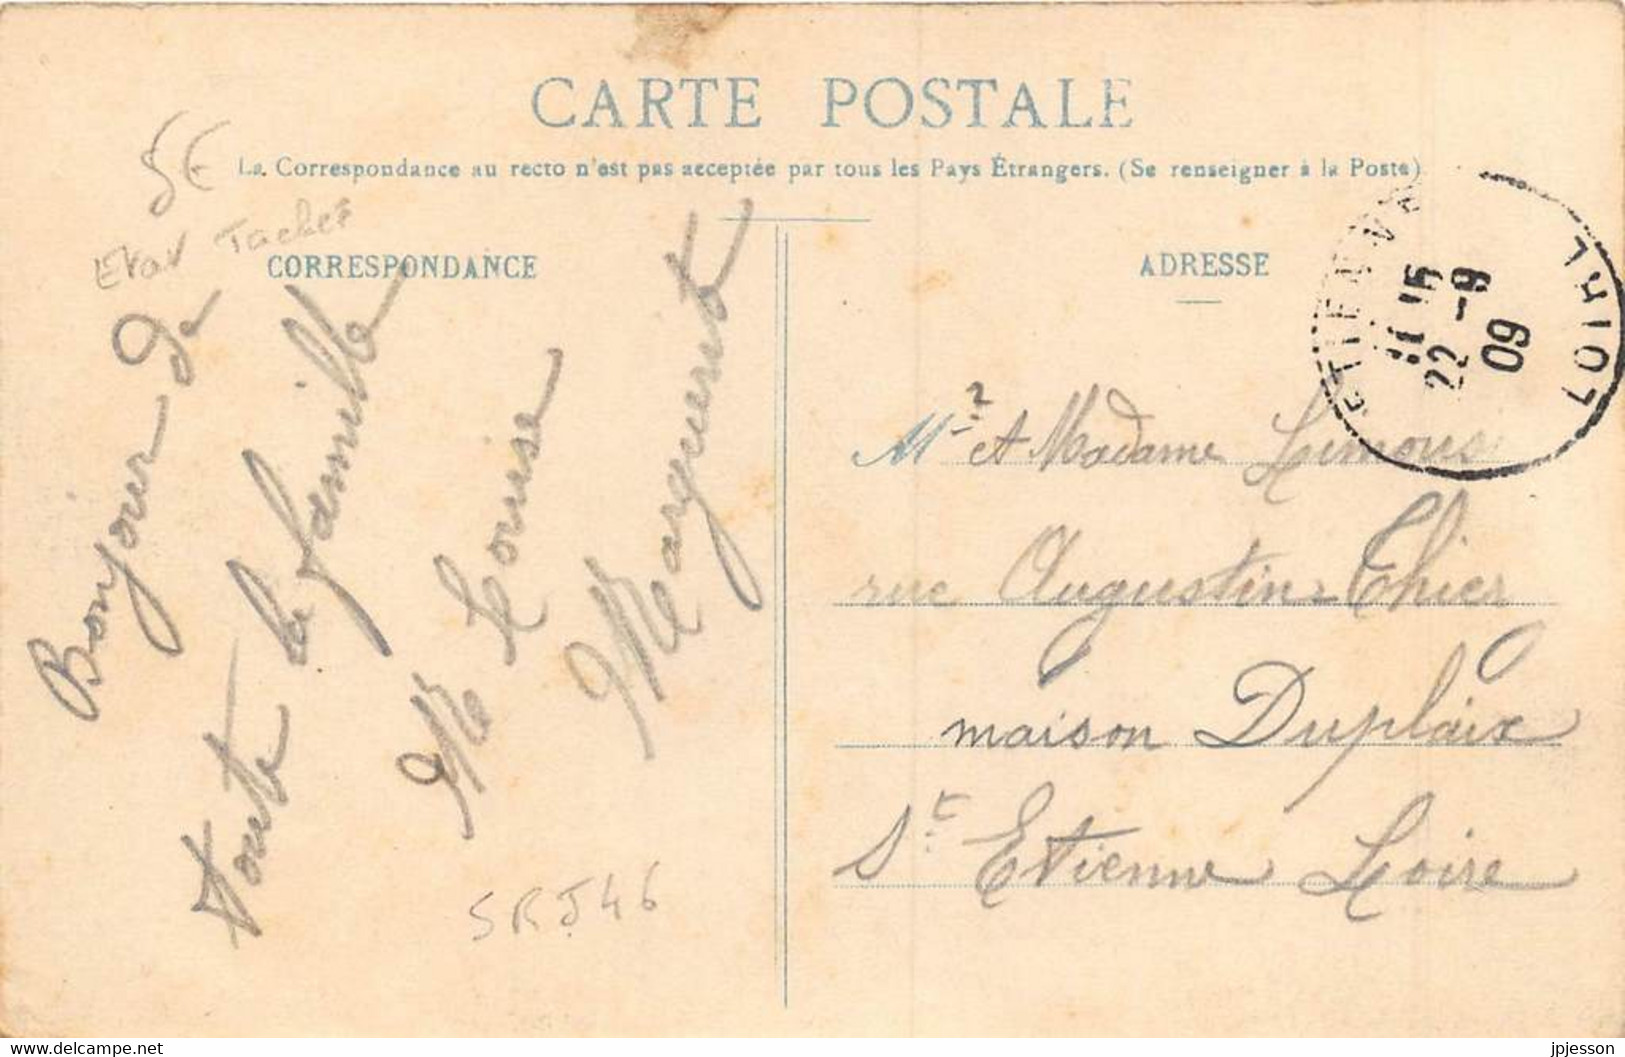 CARTE POSTALE
5€
La Correspondance au recto n'est pas acceptée par tous les Pays Étrangers. (Se renseigner à la Poste)
Etat Taché
CORRESPONDANCE
ADRESSE
Bonjour de
toute la famille
Louise
Marguerite
SRJ46
22 -9
09
LOIRE
Mr et Madame Limous
rue Augustin Thier
maison Duplaix
St Etienne Loire
Delcampe.net
jpjesson